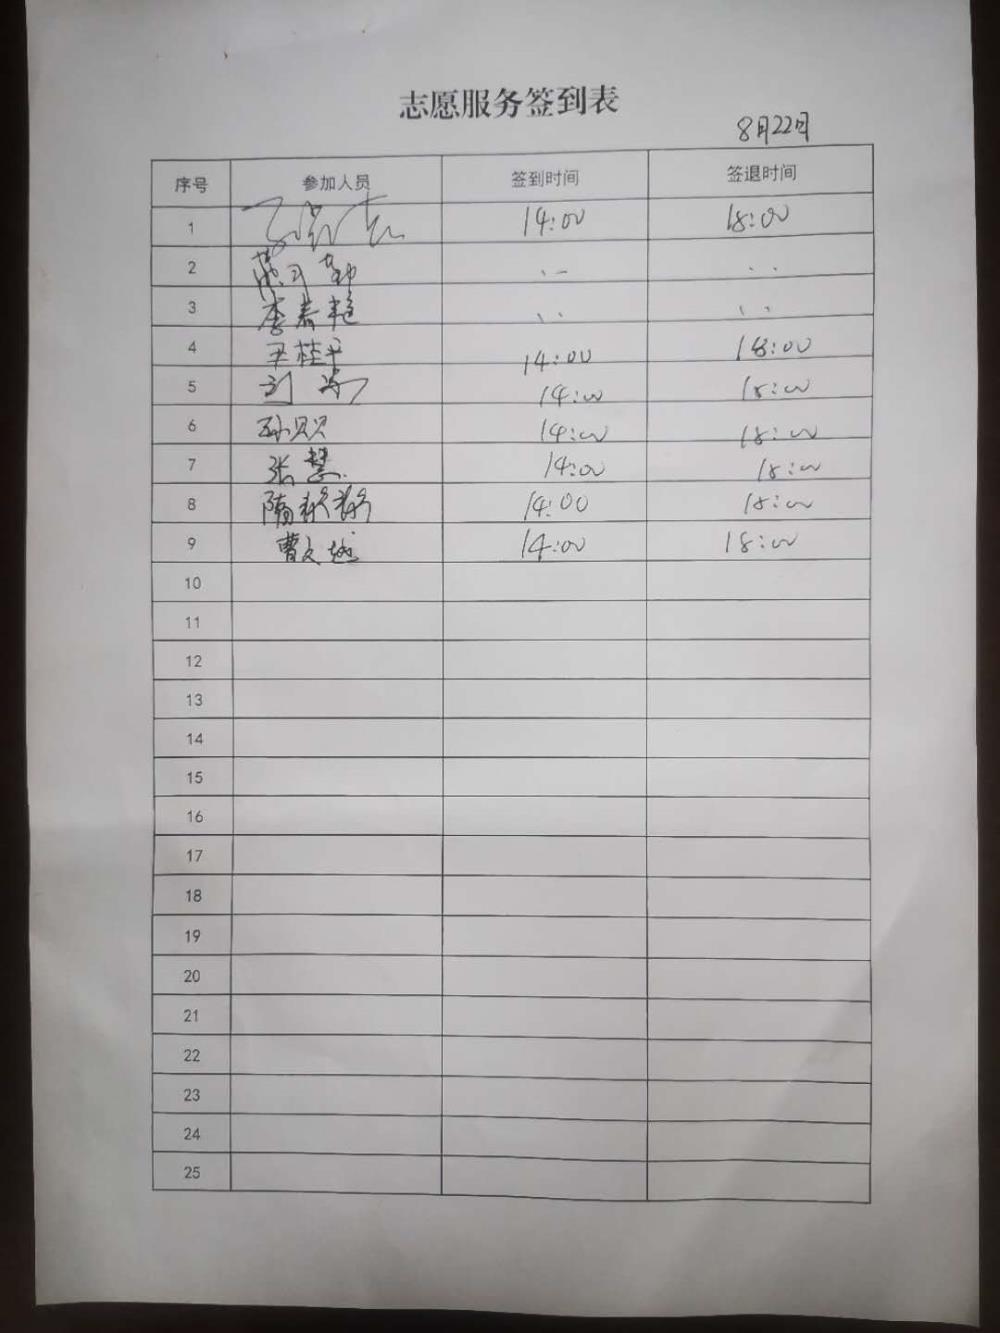 志愿服务签到表
8月22日
序号 参加人员 签到时间 签退时间
1 14:00 18:00
2
3 李春艳
4 尹桂平 14:00 18:00
5 刘 14:00 18:00
6 孙贝贝 14:00 18:00
7 张慧 14:00 18:00
8 隋 14:00 18:00
9 曹文越 14:00 18:00
10
11
12
13
14
15
16
17
18
19
20
21
22
23
24
25